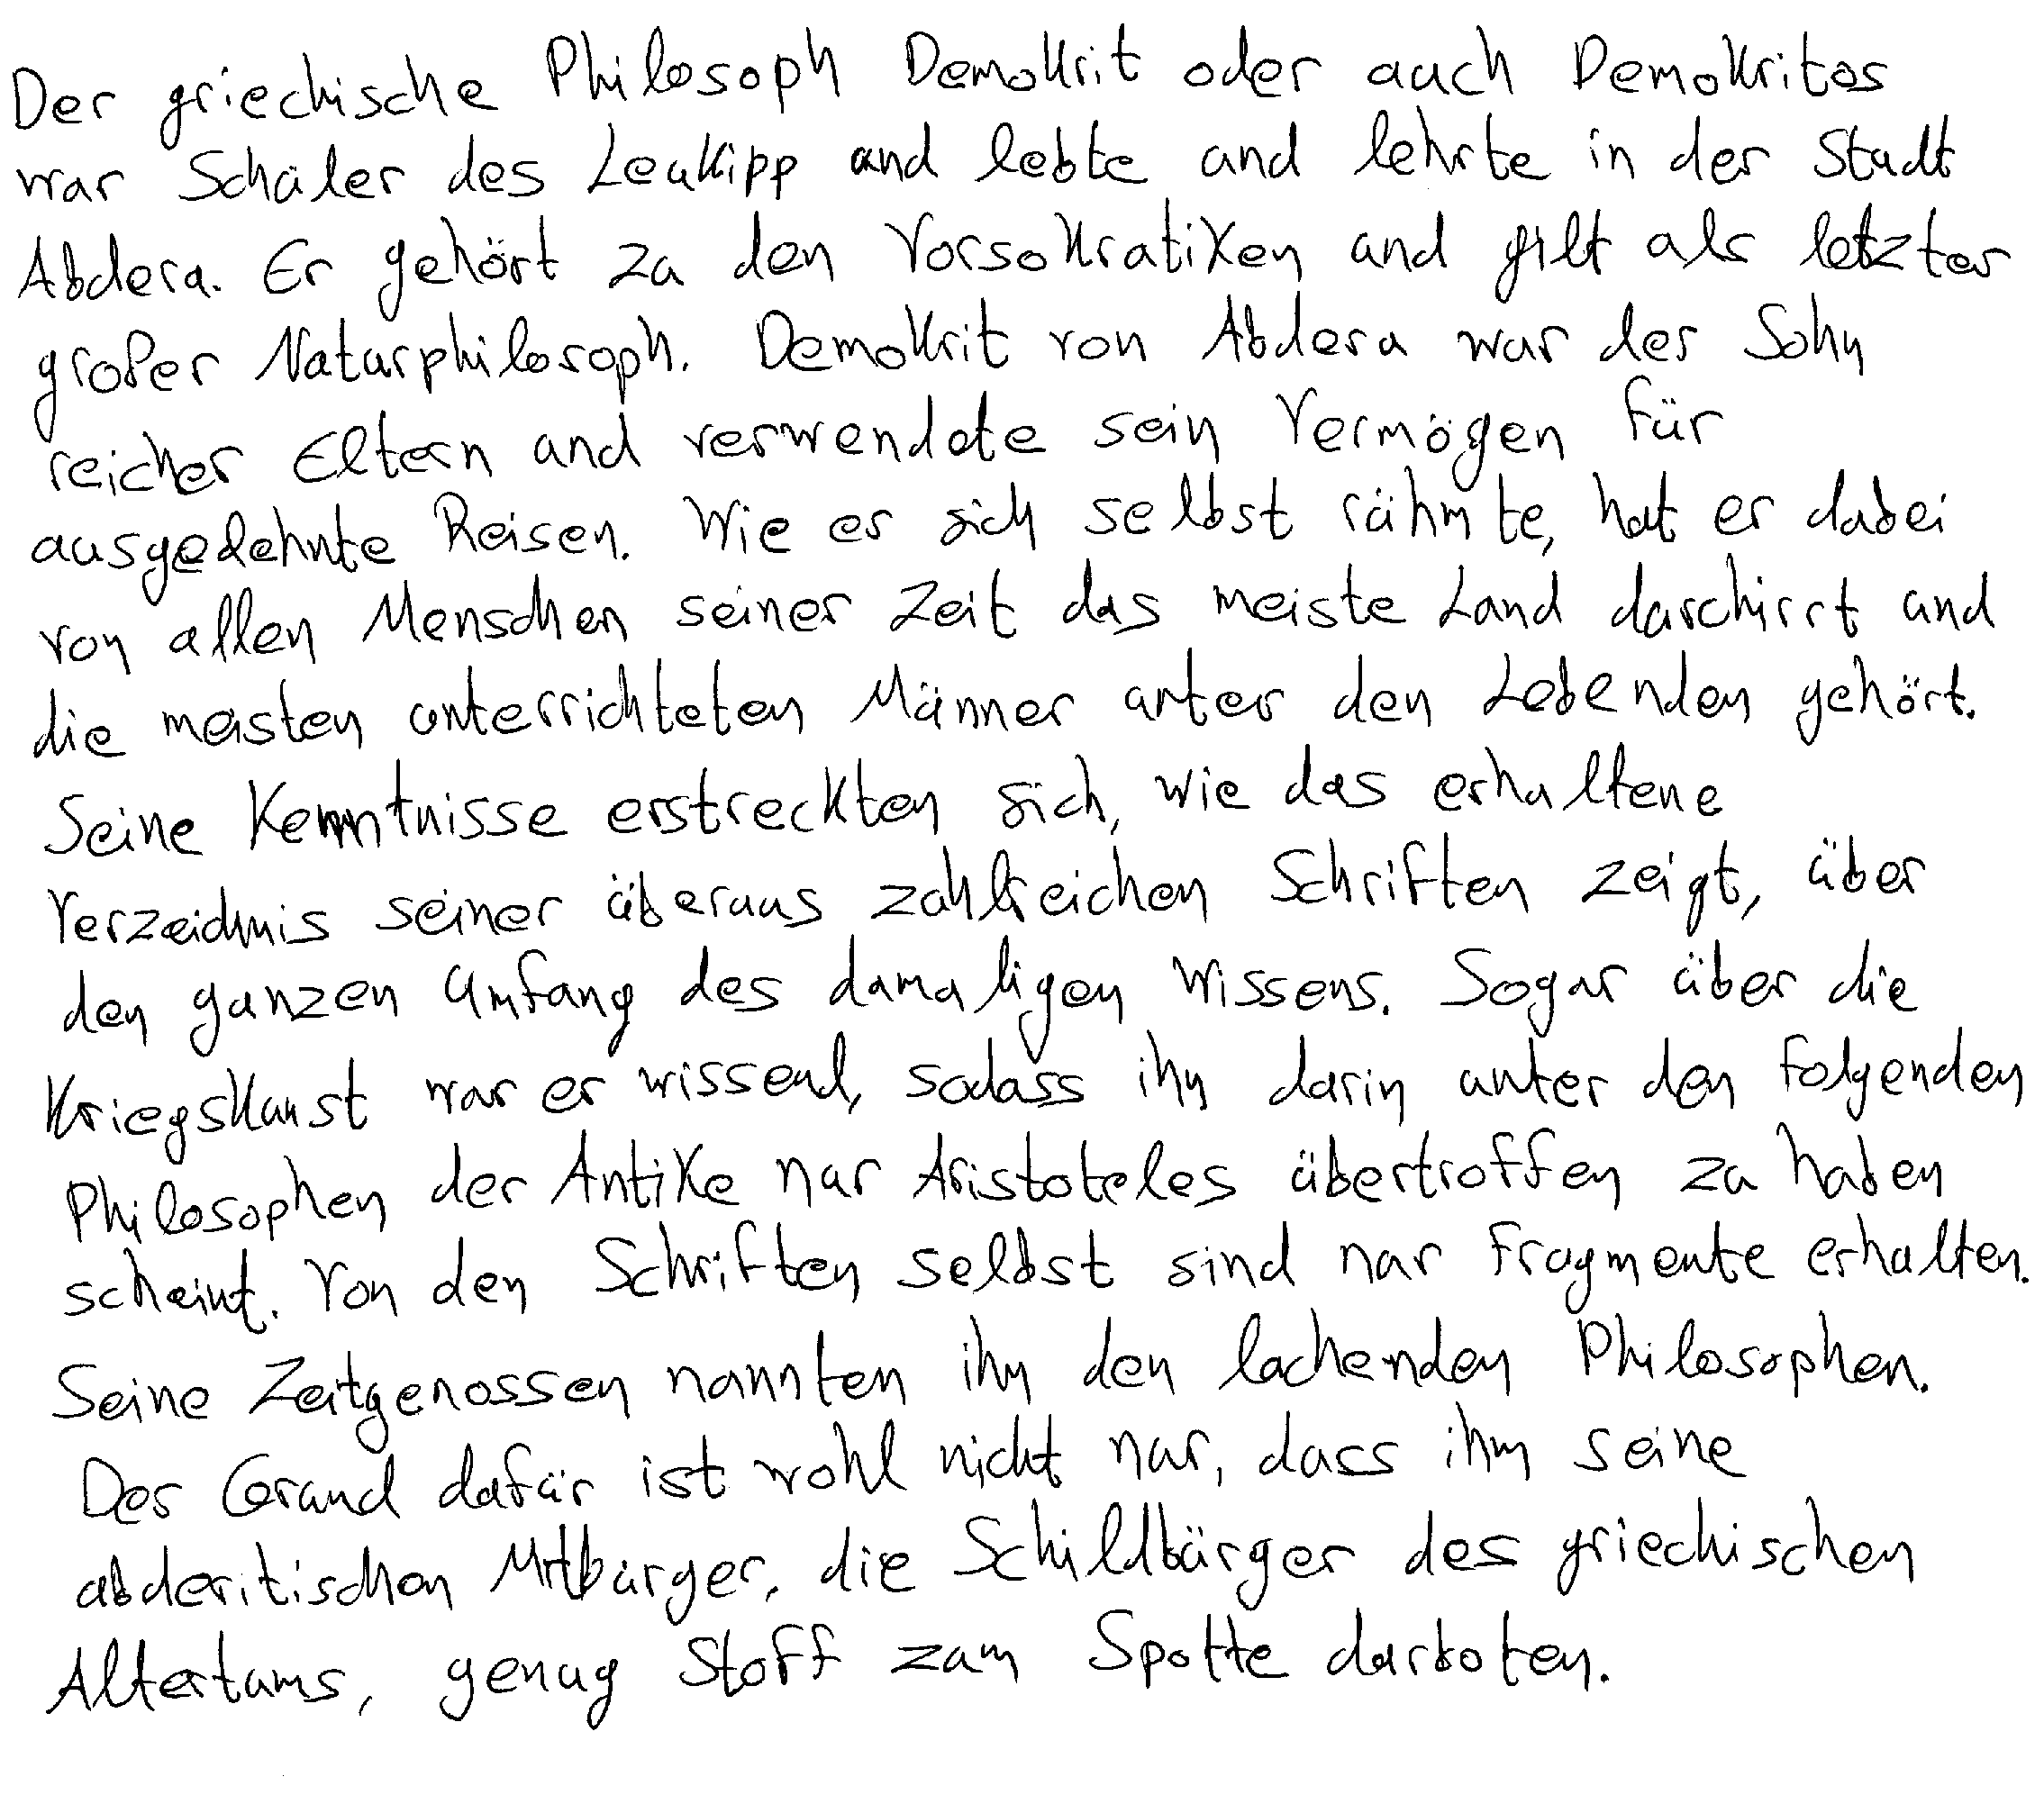 Der griechische Philosoph Demokrit oder auch Demokritos
war Schüler des Leukipp und lebte und lehrte in der Stadt
Abdera. Er gehört zu den Vorsokratiken und gilt als letzter
großer Naturphilosoph. Demokrit von Abdera war der Sohn
reicher Eltern und verwendete sein Vermögen für
ausgedehnte Reisen. Wie er sich selbst rühmte, hat er dabei
von allen Menschen seiner Zeit das meiste Land durchirrt und
die meisten unterrichteten Männer unter den Lebenden gehört.
Seine Kenntnisse erstreckten sich, wie das erhaltene
Verzeichnis seiner überaus zahlreichen Schriften zeigt, über
den ganzen Umfang des damaligen Wissens. Sogar über die
Kriegskunst war er wissend, sodass ihn darin unter den folgenden
Philosophen der Antike nur Aristoteles übertroffen zu haben
scheint. Von den Schriften selbst sind nur Fragmente erhalten.
Seine Zeitgenossen nannten ihn den lachenden Philosophen.
Der Grund dafür ist wohl nicht nur, dass ihm seine
abderitischen Mitbürger, die Schildbürger des griechischen
Altertums, genug Stoff zum Spotte darboten.